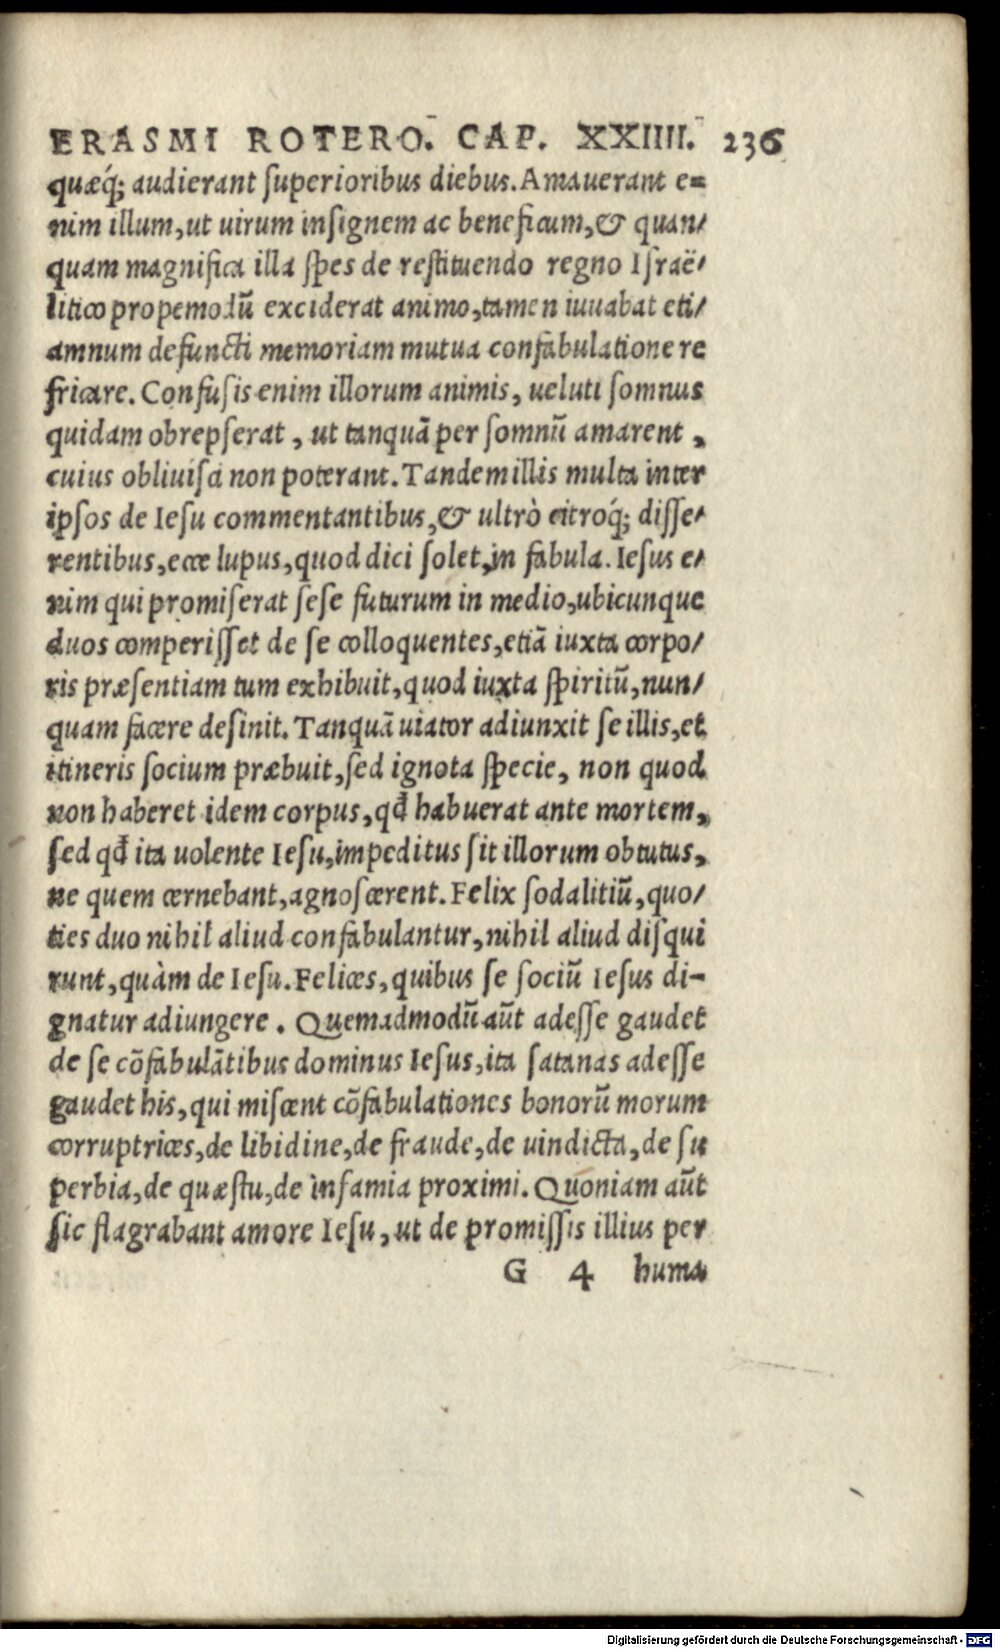 ERASMI ROTERO. CAP. XXIIII. 236
quæq́; audierant ſuperioribus diebus. Amauerant e=
nim illum, ut uirum inſignem ac beneficum, & quan/
quam magnifica illa ſpes de reſtituendo regno Iſraë/
litico propemodũ exciderat animo, tamen iuuabat eti/
amnum defuncti memoriam mutua confabulatione re
fricare. Confuſis enim illorum animis, ueluti ſomnus
quidam obrepſerat, ut tanquã per ſomnũ amarent,
cuius obliuiſci non poterant. Tandem illis multa inter
ipſos de Ieſu commentantibus, & ultrò citróq́; diſſe/
rentibus, ecce lupus, quod dici ſolet, in fabula. Ieſus e/
nim qui promiſerat ſeſe futurum in medio, ubicunque
duos comperiſſet de ſe colloquentes, etiã iuxta corpo/
ris præſentiam tum exhibuit, quod iuxta ſpiritũ, nun/
quam facere deſinit. Tanquã uiator adiunxit ſe illis, et
itineris ſocium præbuit, ſed ignota ſpecie, non quod
non haberet idem corpus, qđ habuerat ante mortem,
ſed qđ ita uolente Ieſu, impeditus ſit illorum obtutus,
ne quem cernebant, agnoſcerent. Felix ſodalitiũ, quo/
ties duo nihil aliud confabulantur, nihil aliud diſqui
runt, quàm de Ieſu. Felices, quibus ſe ſociũ Ieſus di-
gnatur adiungere. Quemadmodũ aũt adeſſe gaudet
de ſe cõfabulãtibus dominus Ieſus, ita ſatanas adeſſe
gaudet his, qui miſcent cõfabulationes bonorũ morum
corruptrices, de libidine, de fraude, de uindicta, de ſu
perbia, de quæſtu, de infamia proximi. Quoniam aũt
ſic flagrabant amore Ieſu, ut de promiſſis illius per
G 4 huma
Digitalisierung gefördert durch die Deutsche Forschungsgemeinschaft - DFG